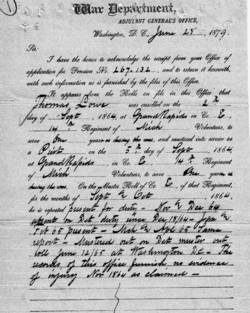 War Department,
ADJUTANT GENERAL'S OFFICE,
Washington, D. C., June 25, 1879
Sir:
I have the honor to acknowledge the receipt from your Office of
application for Pension No. 267,132, and to return it herewith,
with such information as is furnished by the files of this Office.
It appears from the Rolls on file in this Office that
Thomas Lowe was enrolled on the 2d
day of Sept, 1864, at Grand Rapids in Co. E,
14th Regiment of Mich Volunteers, to
serve One years or during the war, and mustered into service as
a Priv on the 5th day of Sept, 1864,
at Grand Rapids, in Co. E, 14th Regiment of
Mich Volunteers, to serve One years or
during the war. On the Muster Roll of Co. E, of that Regiment,
for the months of Sept & Oct, 1864
he is reported present for duty Nov & Dec 64
absent on Det duty since Dec 19/64
65 present Mch & Apl 65 same
report Mustered out on Det muster out
roll June 12/65 at Washington DC The
records of this office furnish no evidence
of injury Nov 1864 as claimed